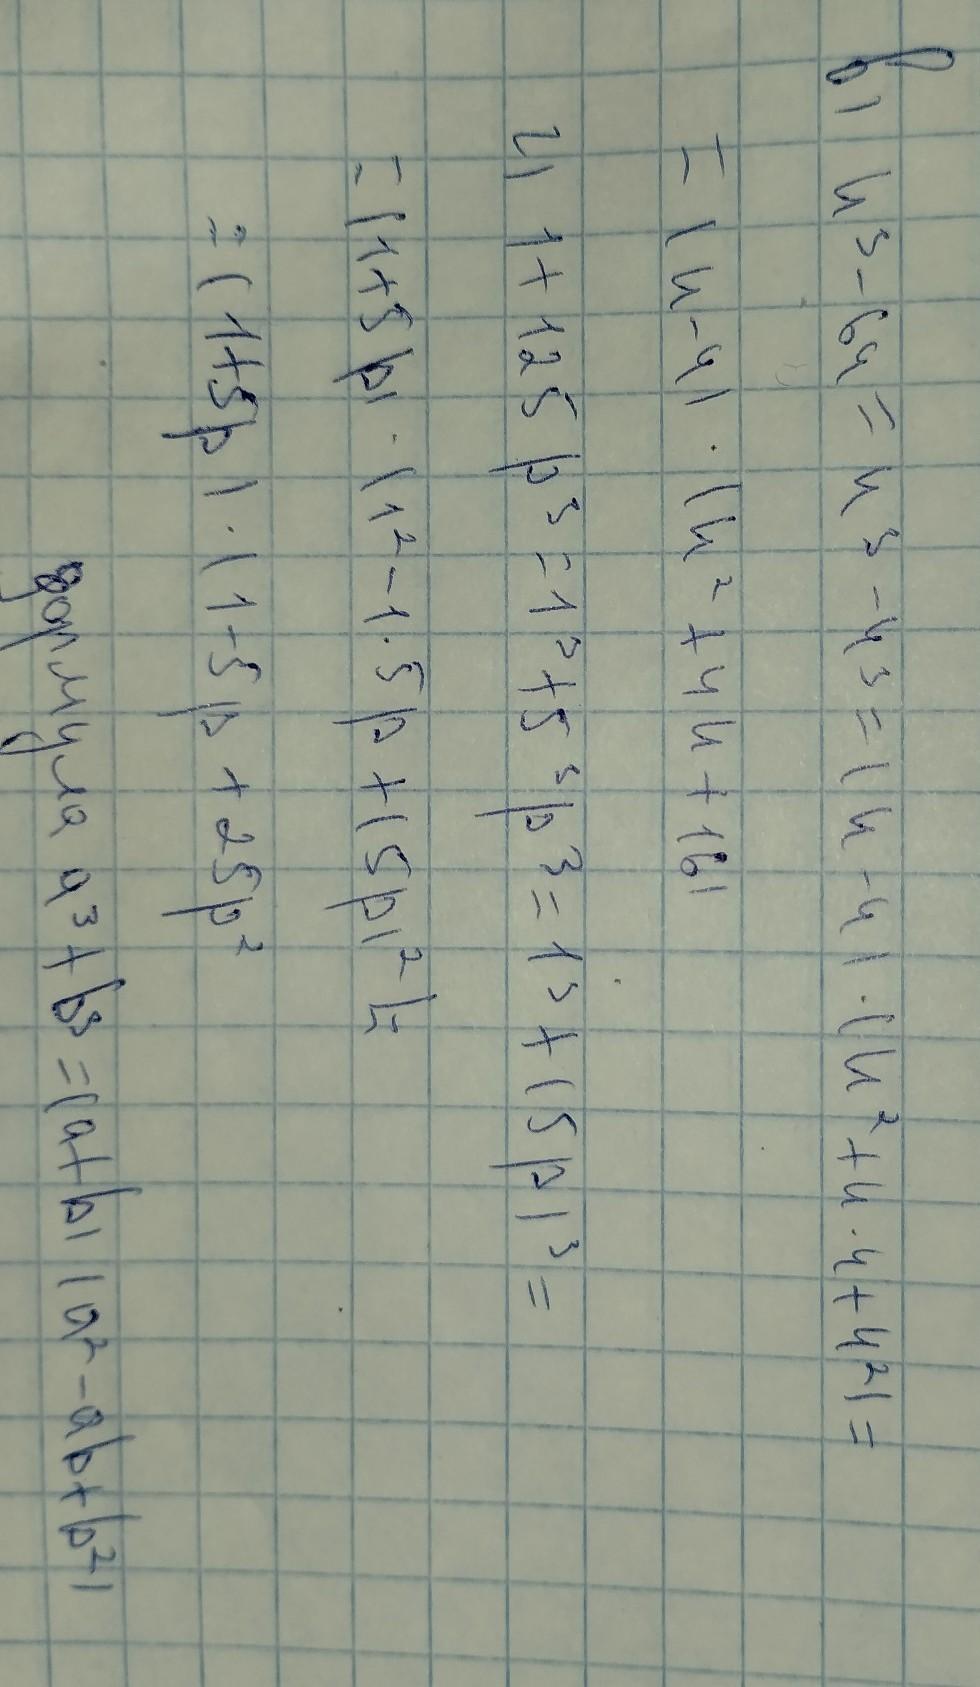 в) u³ - 64 = u³ - 4³ = (u - 4) · (u² + u · 4 + 4²) =
= (u - 4) · (u² + 4u + 16)
г) 1 + 125p³ = 1³ + 5³p³ = 1³ + (5p)³ =
= (1 + 5p) · (1² - 1 · 5p + (5p)²) =
= (1 + 5p) · (1 - 5p + 25p²
формула a³ + b³ = (a + b) (a² - ab + b²)